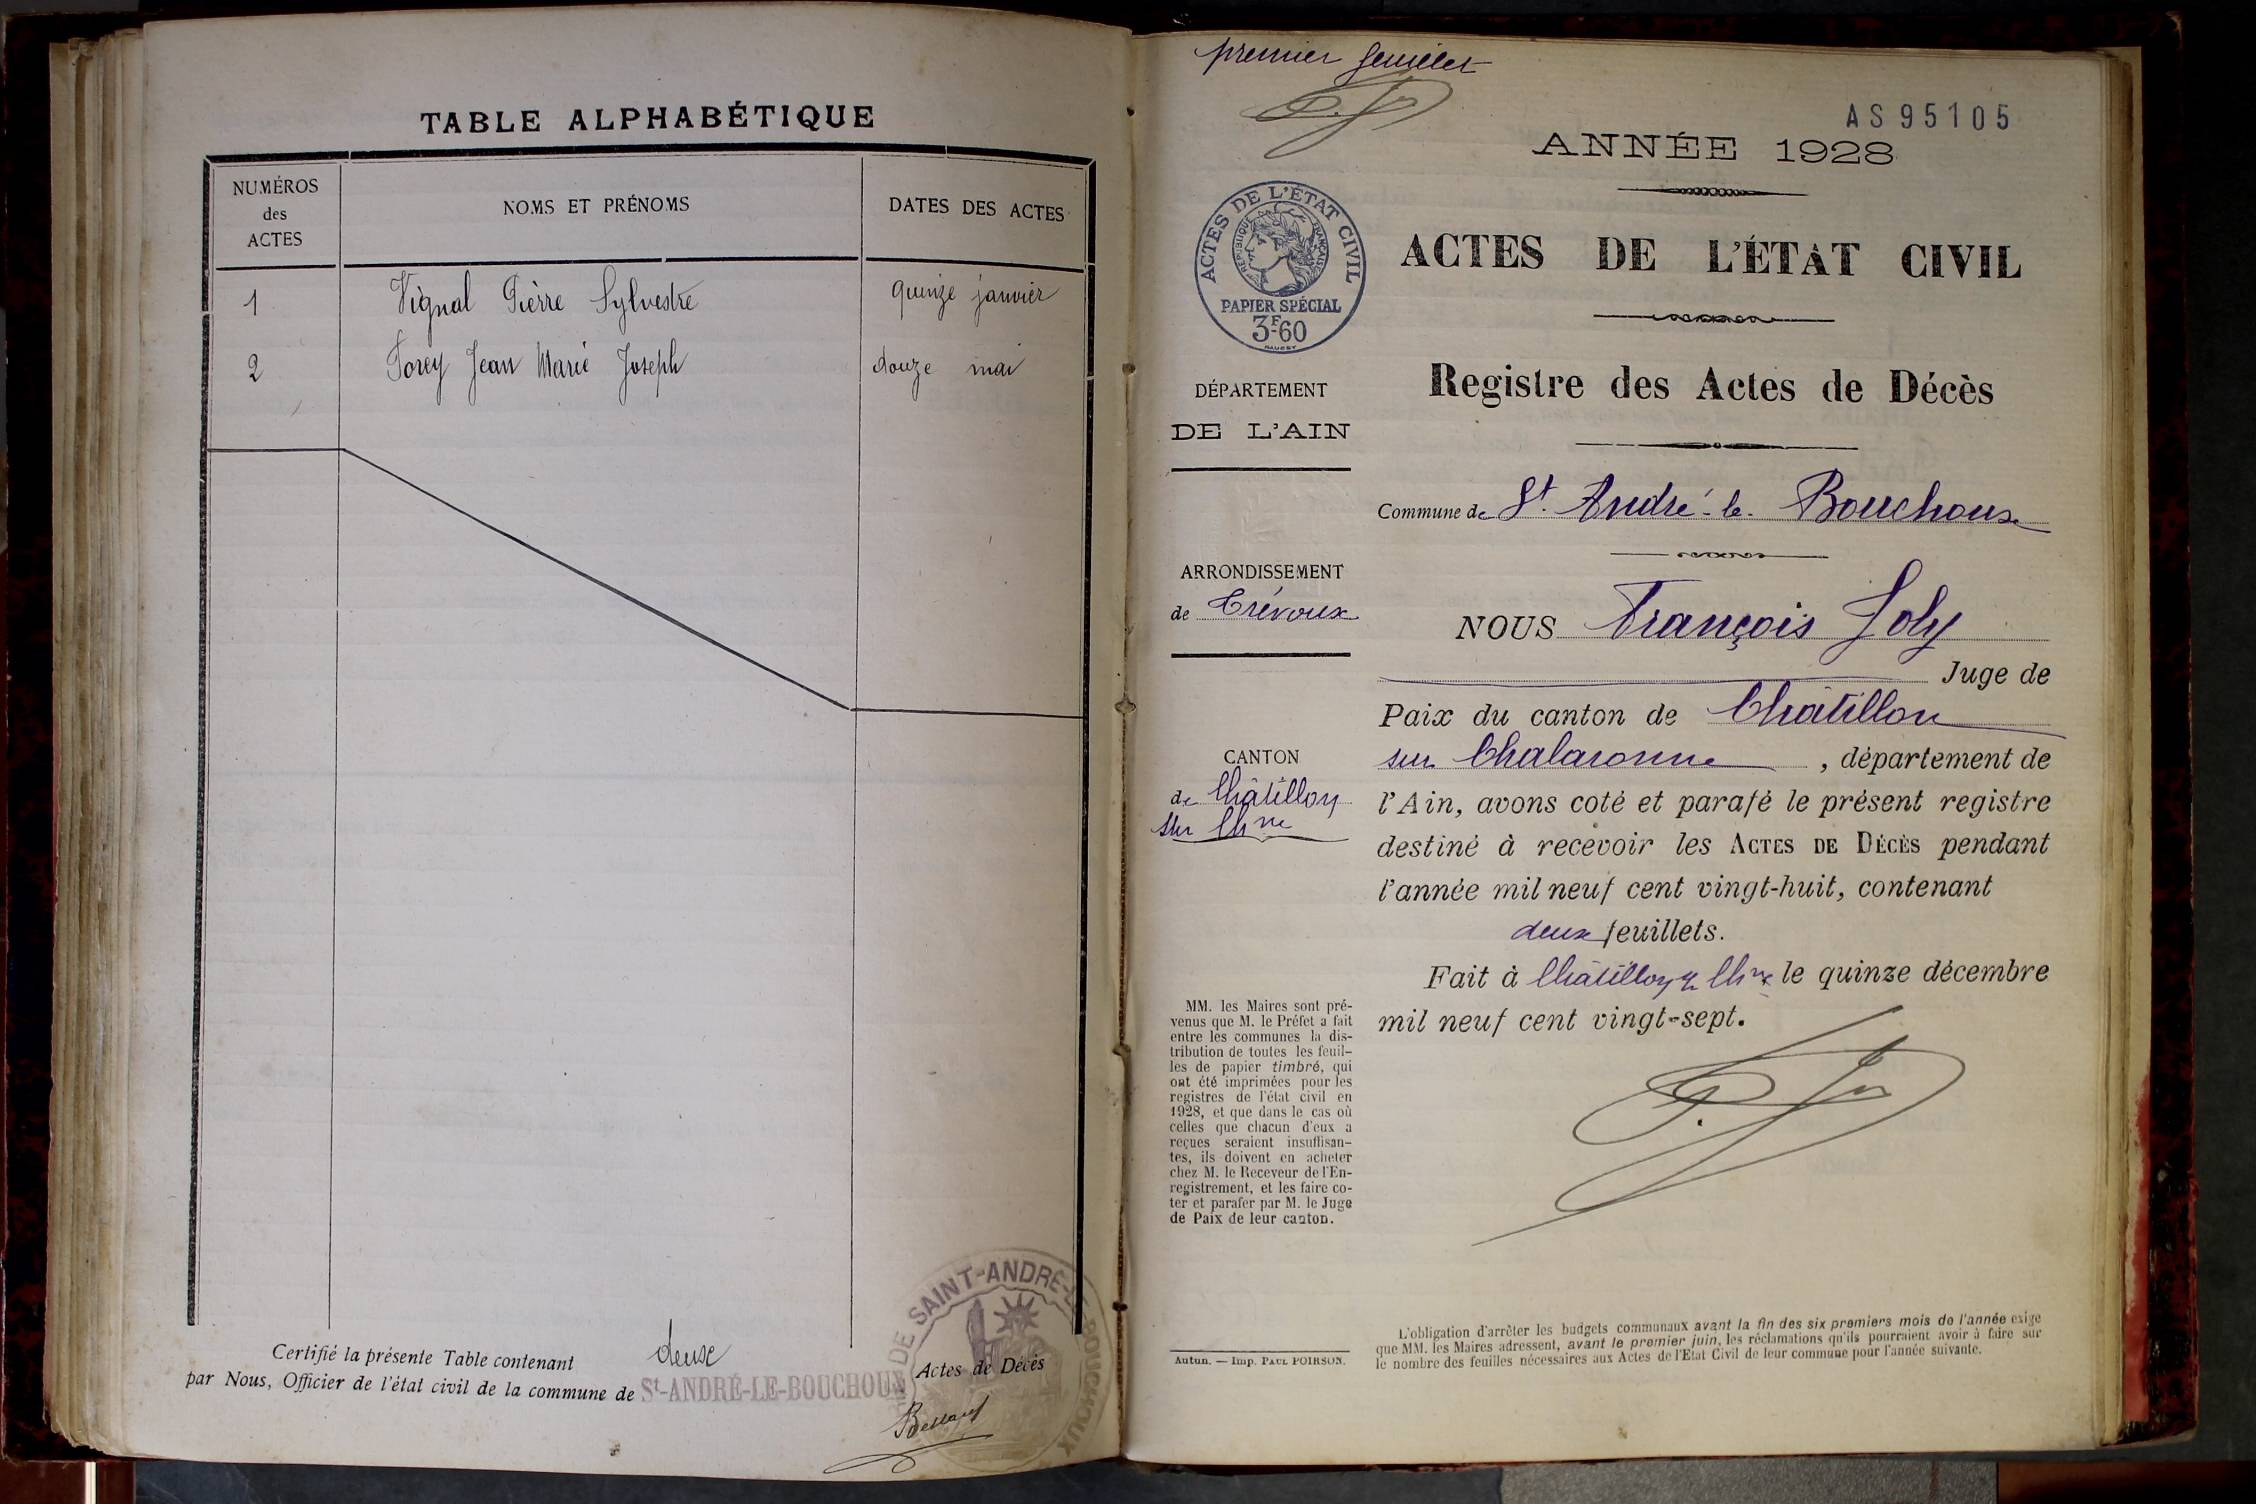 TABLE ALPHABÉTIQUE
NUMÉROS
des
ACTES
NOMS ET PRÉNOMS
DATES DES ACTES
1 Vignal Pierre Sylvestre quinze janvier
2 Forey Jean Marie Joseph douze mai
Certifié la présente Table contenant deux Actes de Décès
par Nous, Officier de l'état civil de la commune de St-ANDRÉ-LE-BOUCHOUX
DE SAINT-ANDRÉ-LE-BOUCHOUX
premier feuillet
AS 95105
ANNÉE 1928
ACTES DE L'ÉTAT CIVIL
RÉPUBLIQUE FRANÇAISE
PAPIER SPÉCIAL
3F60
ACTES DE L'ÉTAT CIVIL
Registre des Actes de Décès
DÉPARTEMENT
DE L'AIN
Commune de St. André-le-Bouchoux
ARRONDISSEMENT
de Trévoux
NOUS François Joly
Juge de
Paix du canton de Châtillon
sur Chalaronne, département de
l'Ain, avons coté et parafé le présent registre
destiné à recevoir les ACTES DE DÉCÈS pendant
l'année mil neuf cent vingt-huit, contenant
deux feuillets.
Fait à Châtillon s. Chne le quinze décembre
mil neuf cent vingt-sept.
CANTON
de Châtillon
sur Chne
MM. les Maires sont pré-
venus que M. le Préfet a fait
entre les communes la dis-
tribution de toutes les feuil-
les de papier timbré, qui
ont été imprimées pour les
registres de l'état civil en
1928, et que dans le cas où
celles que chacun d'eux a
reçues seraient insuffisan-
tes, ils doivent en acheter
chez M. le Receveur de l'En-
registrement, et les faire co-
ter et parafer par M. le Juge
de Paix de leur canton.
Autun. — Imp. PAUL POIRSON.
L'obligation d'arrêter les budgets communaux avant la fin des six premiers mois de l'année exige
que MM. les Maires adressent, avant le premier juin, les réclamations qu'ils pourraient avoir à faire sur
le nombre des feuilles nécessaires aux Actes de l'Etat Civil de leur commune pour l'année suivante.